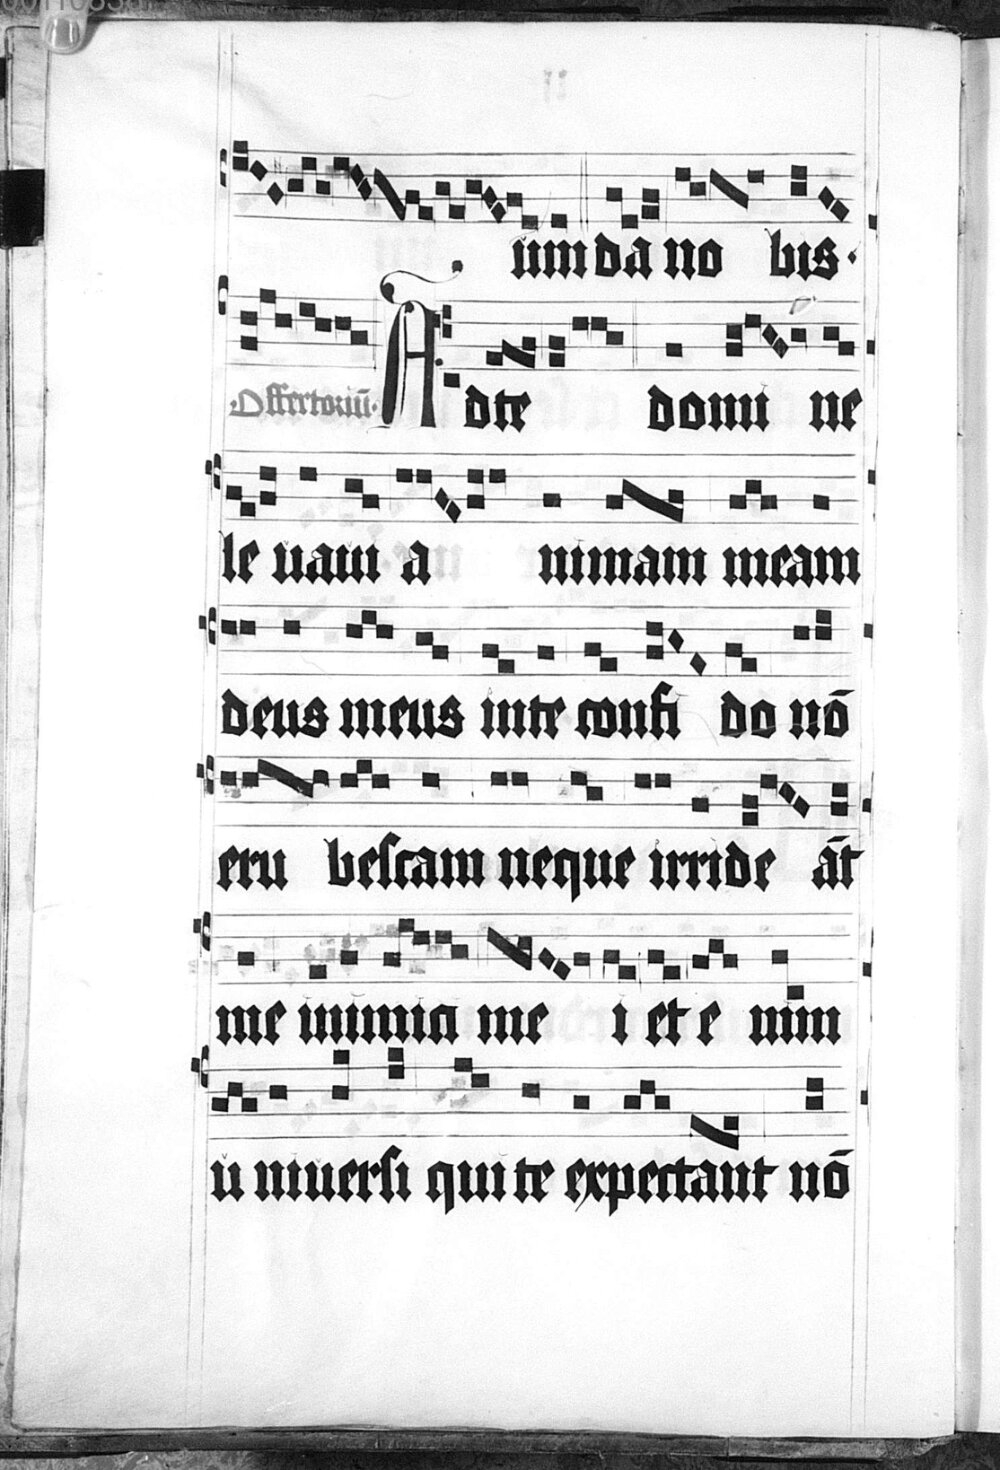 um da no bis.
Offertoriū. Ad te domi ne
le uaui a nimam meam
deus meus in te confi do nō
eru bescam neque irride āt
me inimici me i et e nim
u niuersi qui te expectant nō